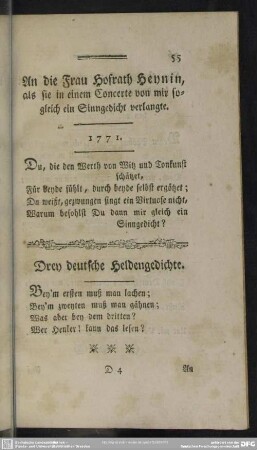 55
An die Frau Hofrath Heynin,
als sie in einem Concerte von mir so-
gleich ein Sinngedicht verlangte.
1771.
Du, die den Werth von Witz und Tonkunst
schätzet,
Für beyde fühlt, durch beyde selbst ergötzet;
Du weißt, gezwungen singt ein Virtuose nicht,
Warum befohlst Du dann mir gleich ein
Sinngedicht?
Drey deutsche Heldengedichte.
Bey'm ersten muß man lachen;
Bey'm zweyten muß man gähnen;
Was aber bey dem dritten?
Wer Henker! kann das lesen?
D 4
An
DFG